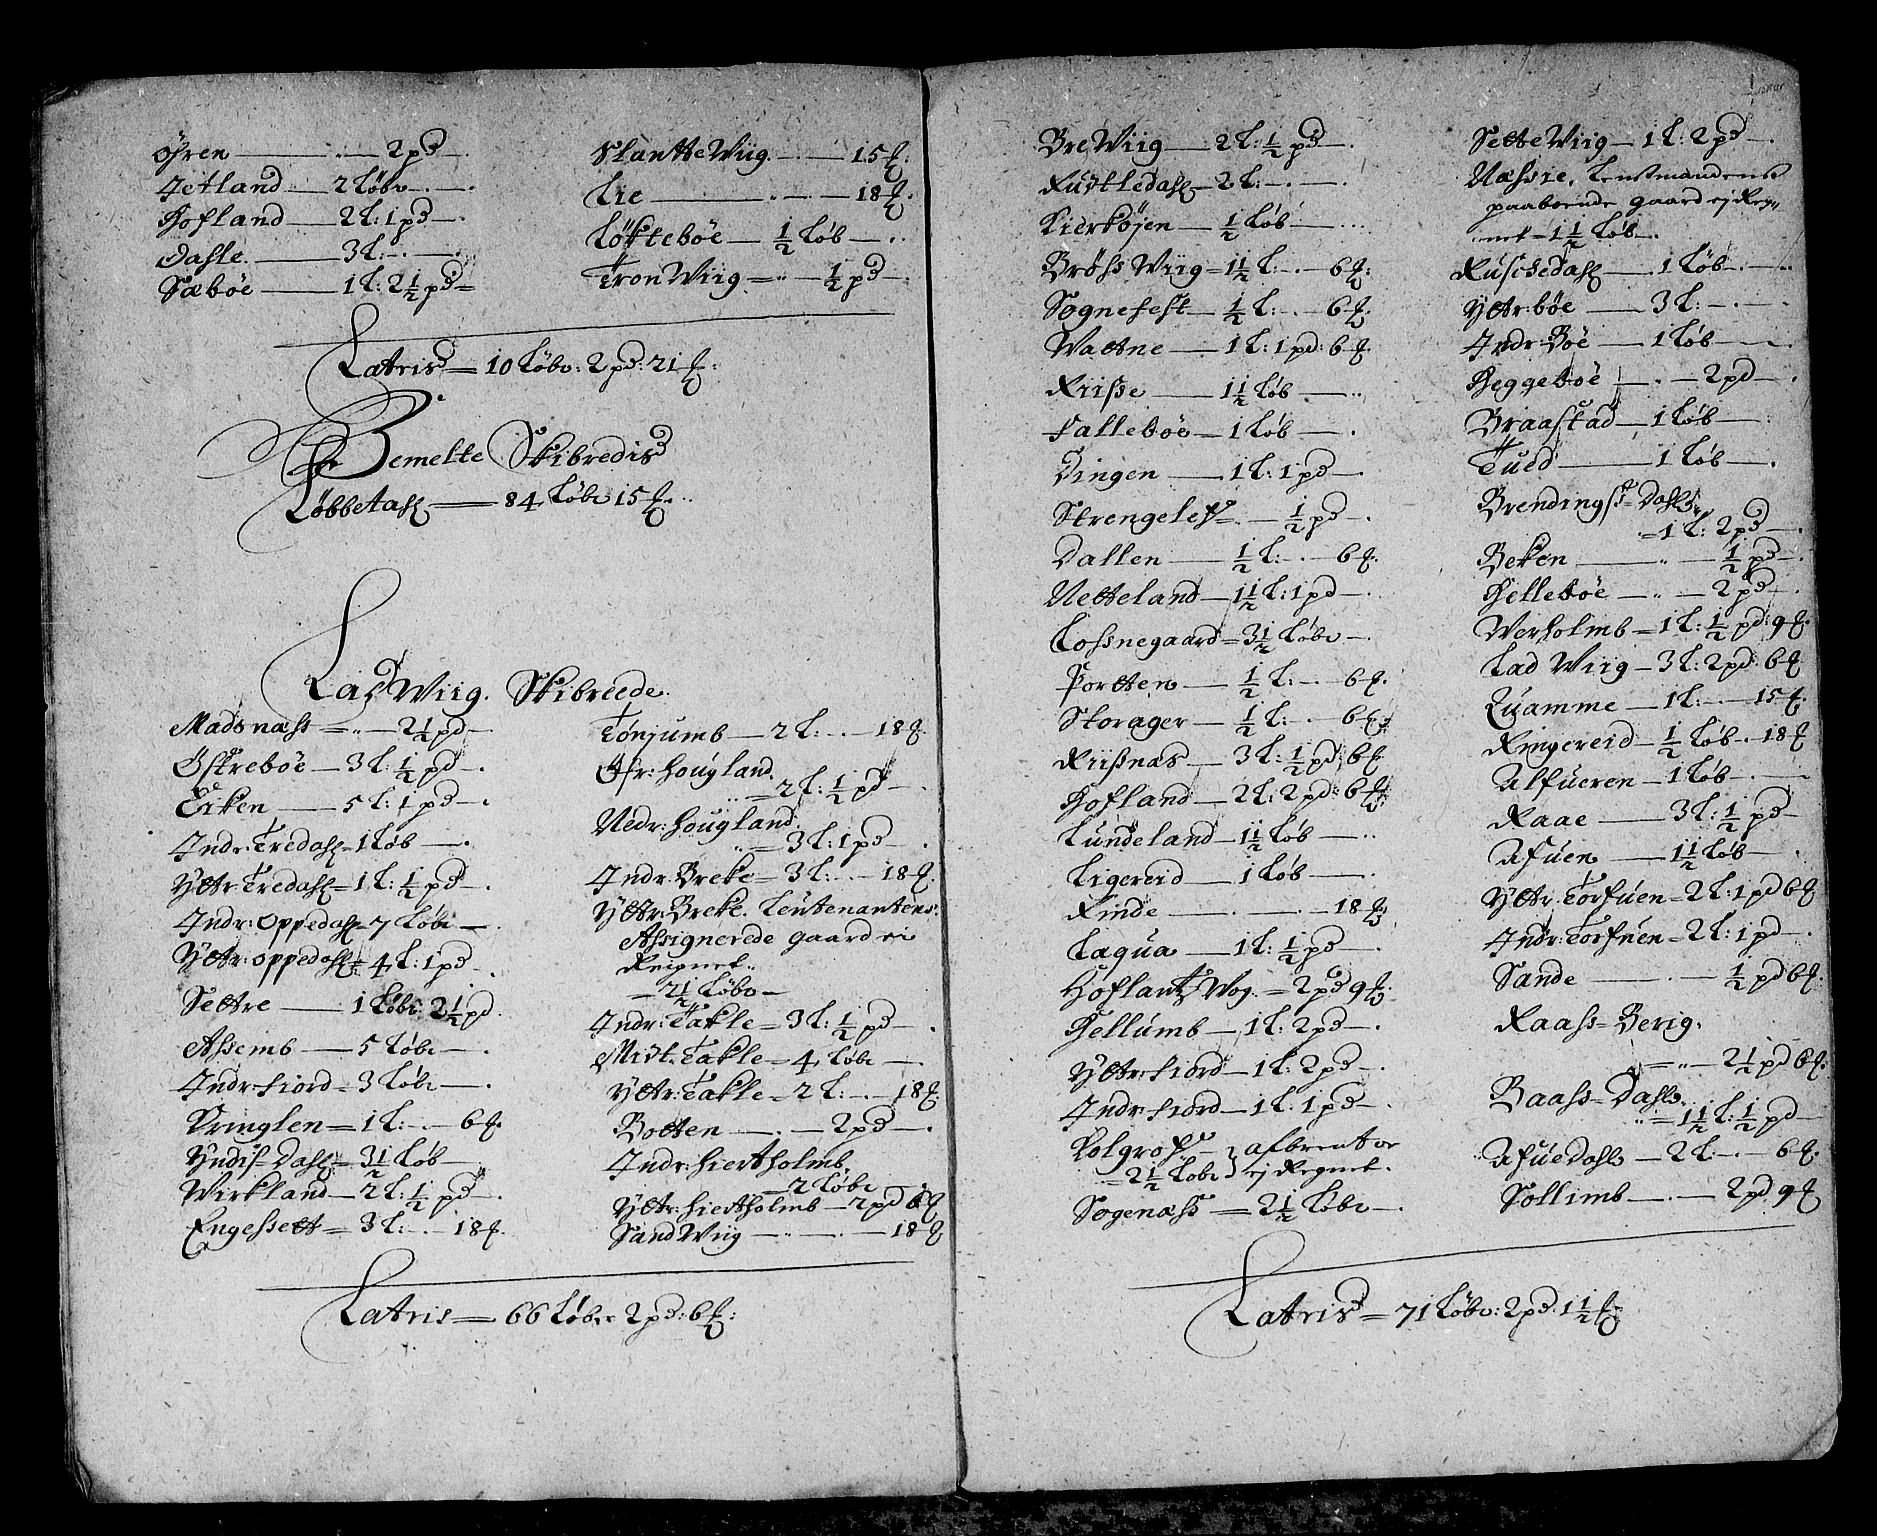 Øren — 2 pd —
Jetland — 2 Løbr —
Hofland — 2 L: 1 pd —
Dahle — 3 L: —
Sæbøe — 1 L: 2½ pd =
SlantteWiig — 15 ℔:
Lie — 18 ℔:
Løktebøe — ½ Løb —
TronWiig = „ — ½ pd —
Latris = 10 Løbr: 2 pd: 21 ℔:
Bemelte Skibredis
Løbbetahl — 84 Løbr 15 ℔:
LadWiig. Skibreede.
Madsnæss = „ — 2½ pd —
Østrebøe — 3 L: ½ pd —
Eiken — 5 L: 1 pd —
Indr: Tredahl = 1 Løb —
Yttr: Tredahl = 1 L: ½ pd —
Indr: Oppedahl = 7 Løbr —
Yttr: oppedahl = 4 L: 1 pd
Settre — 1 Løbr: 2½ pd
Assemb — 5 Løbr —
Indr: fiord = 3 Løbr —
Vringlen = 1 L: — 6 ℔:
Yndis-Dahl = 3½ Løb —
Wirkland — 2 L: ½ pd —
Engessett = 3 L: — 18 ℔.
Tønjumb — 2 L: — 18 ℔.
Øfr: hougland
„ = 2 L: ½ pd —
Nedr: hougland.
„ = 3 L: 1 pd —
Indr: Breke = 3 L: — 18 ℔.
Yttr: Breke. Leutenantens
Assignerede gaard ei
Reignet..
= 2½ Løbr —
Indr: Takle = 3 L: ½ pd —
Midt: Takle = 4 Løbr —
Yttr: Takle = 2 L: — 18 ℔.
Botten — 2 pd —
Indr: hiertholmb.
= 2 Løbr
Yttr: hiertholmb — 2 pd 6 ℔
SandWiig — „ — 18 ℔
Latris = 66 Løbr 2 pd: 6 ℔:
BreWiig — 2 L: ½ pd —
Rustledahl — 2 L: —
Kierkøjen — ½ Løb —
BrøssWiig = 1½ L: — 6 ℔:
Sognefest — ½ L: — 6 ℔:
Wattne — 1 L: 1 pd: 6 ℔.
Riisse — 1½ Løb —
Fallebøe — 1 Løb —
Dingen — 1 L: 1 pd —
— ½ pd —
Dallen — ½ L: — 6 ℔.
Netteland — 1½ L: 1 pd —
Lossnegaard = 3½ Løbr —
Portten — ½ L: — 6 ℔.
Storager — ½ L: — 6 ℔:
Riisnæs — 3 L: ½ pd: 6 ℔
Hofland — 2 L: 2 pd: 6 ℔
Lundeland — 1½ Løb —
Ligereid — 1 Løb —
Rinde — 18 ℔:
Taqua — 1 L: ½ pd —
Hoflandtz Wog. = 2 pd 9 ℔:
Hellumb — 1 L: 2 pd —
Yttr: fiord — 1 L: 2 pd —
Indr: fiord — 1 L: 1 pd —
Kolgrof — } afbrent oc
= 2½ Løbr } ej Regnet.
Sogenæss = 2½ Løbr —
SetteWiig — 1 L: 2 pd —
Næssie, Lensmandens
paaboende gaard ej Reg„
net — 1½ Løb —
Ruschedahl — 1 Løb —
Yttr: bøe — 3 L: —
Indr: Bøe — 1 Løb —
Heggebøe — 2 pd —
Braastad — 1 Løb —
Tued — 1 Løb —
Brendings-Dahl
= 1 L: 2 pd —
Beken — „ — ½ pd —
Hellebøe — „ — 2 pd —
Werholmb = 1 L: ½ pd: 9 ℔.
LadWiig — 3 L: 2 pd: 6 ℔.
Quamme — 1 L: — 15 ℔.
Ringereid — ½ Løb — 18 ℔
Alfueren — 1 Løb —
Raae — 3 L: ½ pd —
Afuen — 1½ Løb —
Yttr: Torfuen = 2 L: 1 pd 6 ℔
Indr: Torfuen = 2 L: 1 pd —
Sande — ½ pd 6 ℔:
Raass-Berig.
= „ — 2½ pd 6 ℔:
Baass-Dahl.
„ = 1½ L: ½ pd —
AfueDahl — 2 L: — 6 ℔.
Sollimb — 2 pd 9 ℔
Latris = 71 Løbr: 2 pd: 1½ ℔: